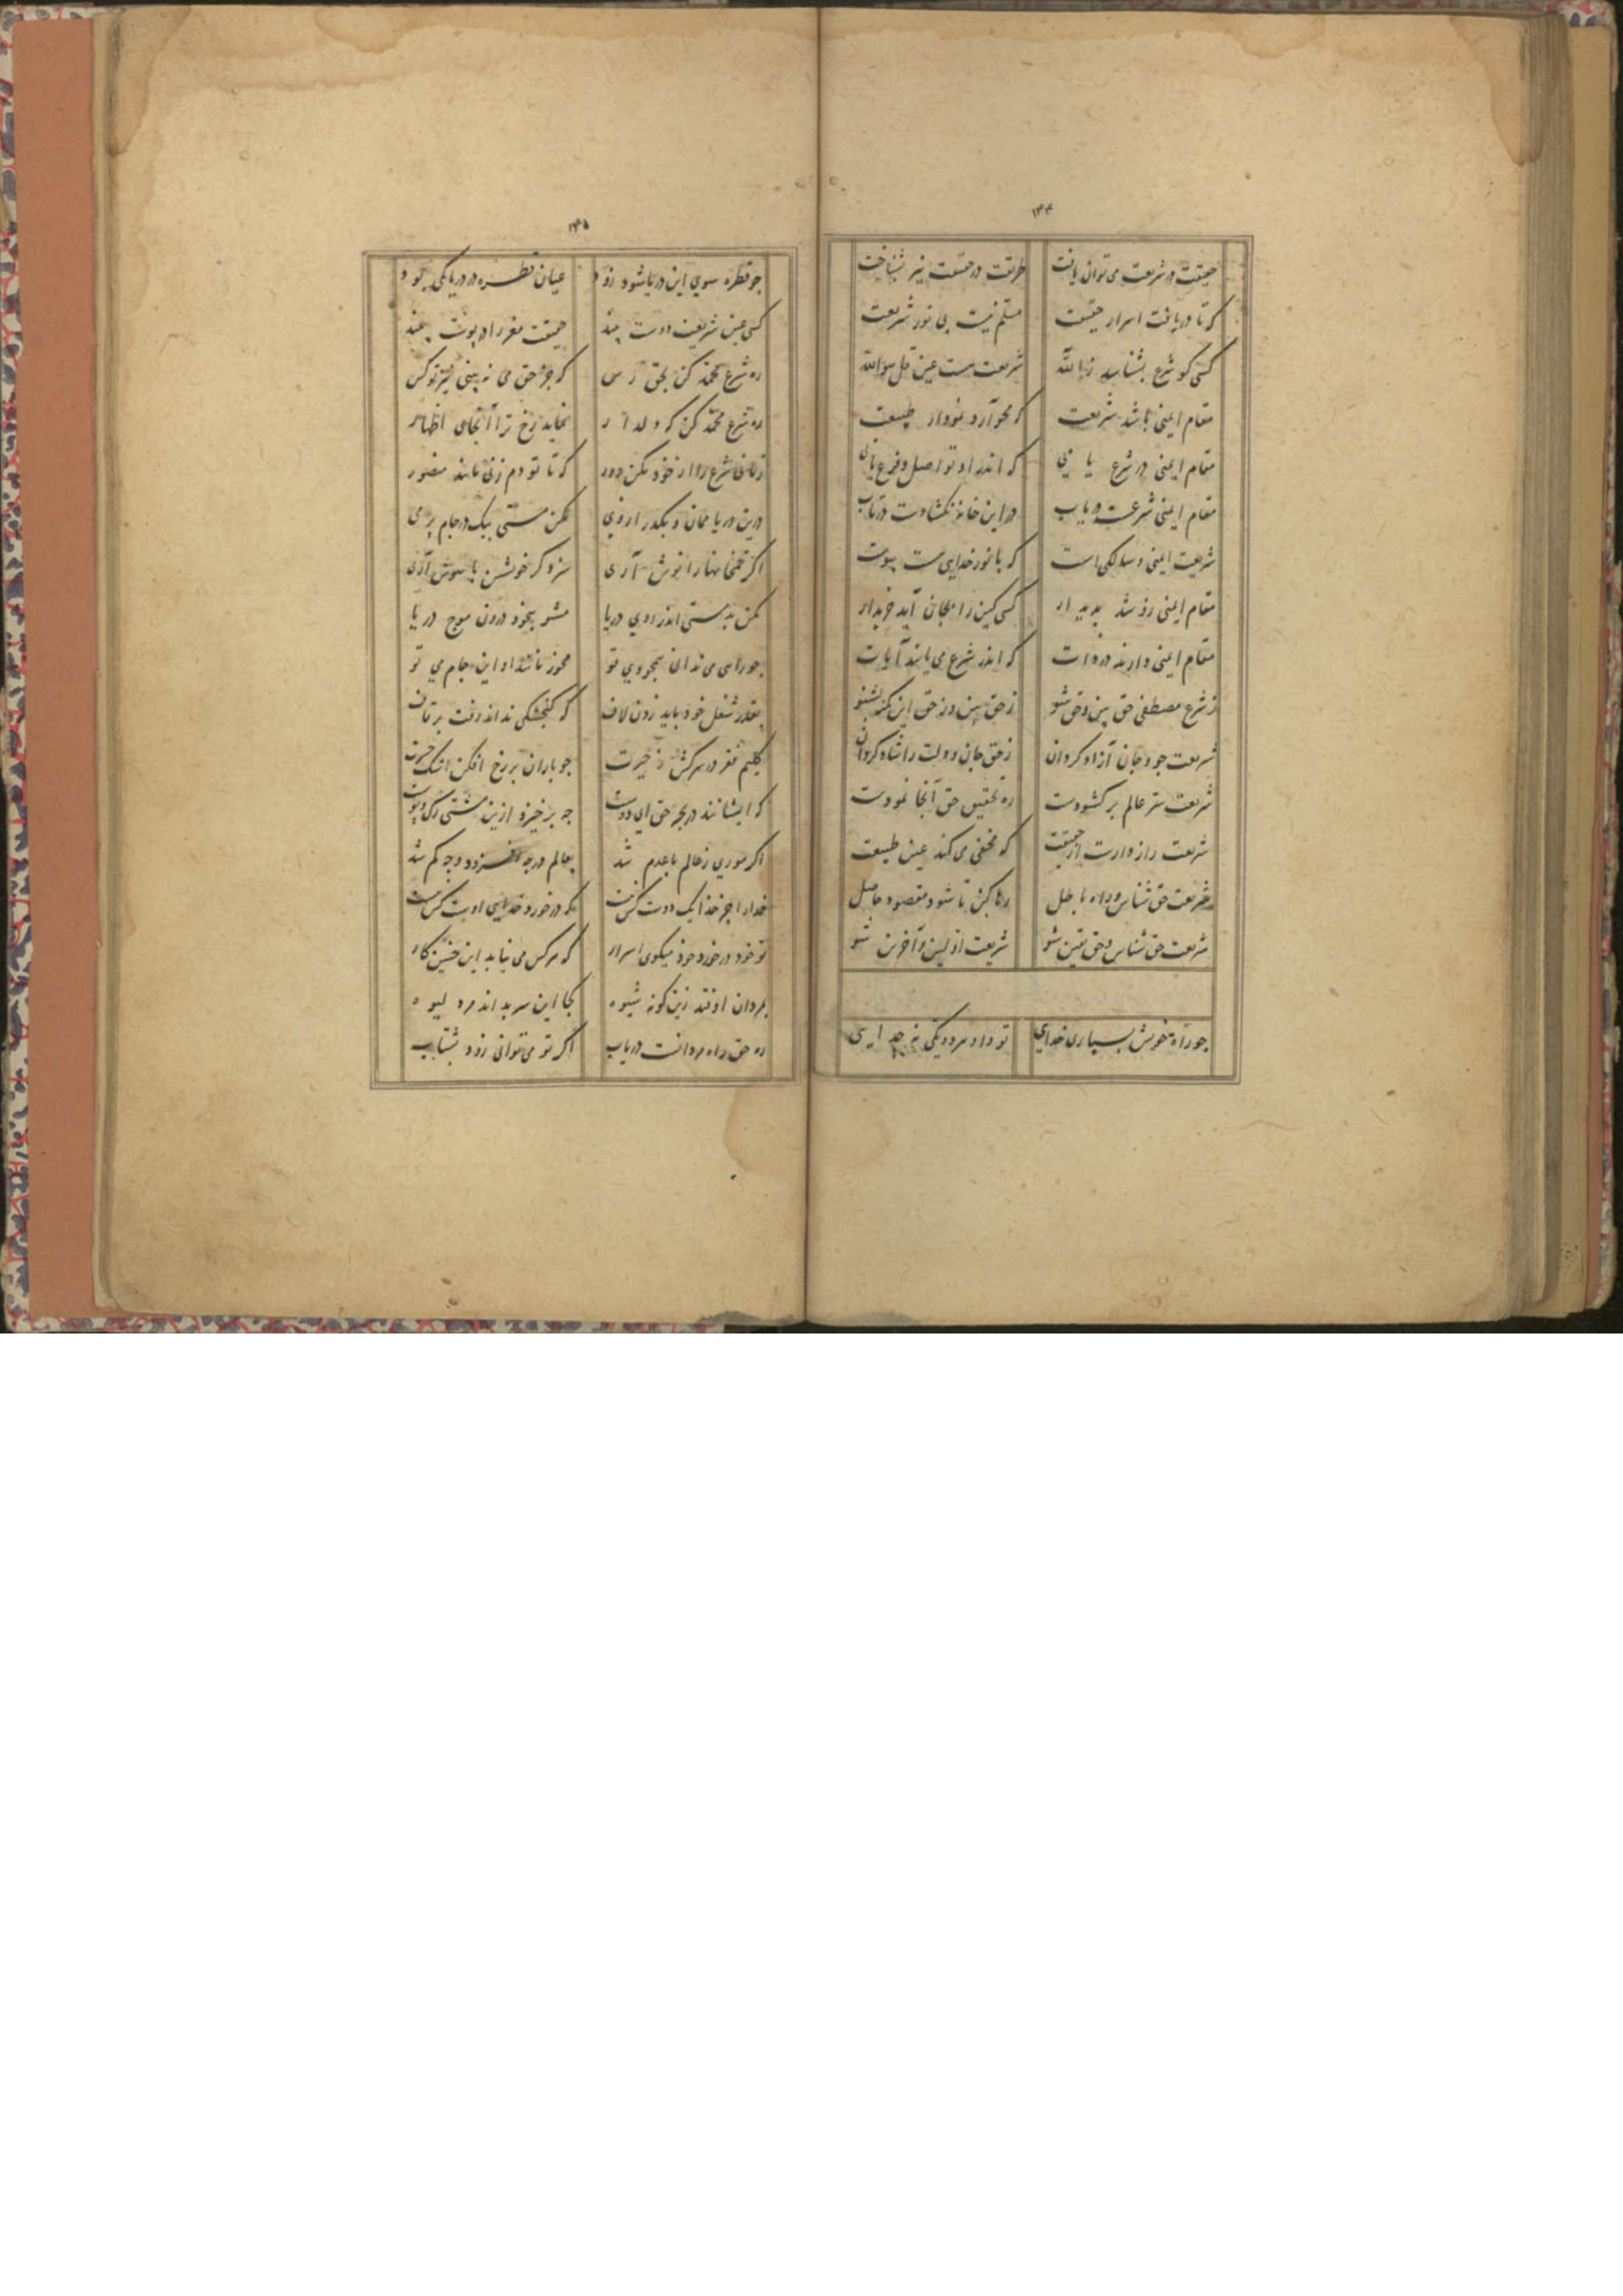 ۱۴۴
حقیقت در شریعت می توان یافت طریقت در حقیقت نیز بشناخت
که تا دریافت اسرار حقیقت مسلم نیست بی نور شریعت
کسی کو شرع بشناسد ز بالله شریعت هست عین قل هو الله
مقام ایمنی باشد شریعت که محو آرد نمودار طبیعت
مقام ایمنی در شرع یابی که اندر او تو اصل و فرع یابی
مقام ایمنی شرعست دریاب در این خانه نکشادست درتاب
شریعت ایمنی و سالکی است که با نور خدایی هست پیوست
مقام ایمنی زو شد پدیدار کسی کین را بجان آید خریدار
مقام ایمنی دارند در ذات که اندر شرع می یابند آیات
ز شرع مصطفی حق بین و حق شو ز حق بین و ز حق این نکته بشنو
شریعت جو و جان آزاد کردان ز حق جان و دلت را شاد کردان
شریعت ستر عالم بر کشودست ره تحقیق حق آنجا نمودست
شریعت راز دارست از حقیقت که مخفی می کند عین طبیعت
شریعت حق شناس و راه باطل رها کن تا شود مقصود حاصل
شریعت حق شناس و حق یقین شو شریعت اولین و آخرین شو
جو راه خویش بسپاری خدایی تو داد مرد ویکی نه جدایی
۱۴۵
جو قطره سوی این دریا شود زود عیان قطره در دریا یکی بود
کسی عین شریعت دوست بیند حقیقت مغز را در پوست بیند
ره شرع محمد کن بحق رس که جز حق می نه بینی نیز تو کس
ره شرع محمد کن که دلدار نماید رخ ترا آنجای اظهار
زمانی شرع را از خود مکن دور که تا تو دم زنی مانند منصور
درین دریا ممان و بگذر از وی مکن مستی بیک در جام پر می
اگر خمخانها را نوش آری سزد کر خویشتن با هوش آری
مکن بد مستی اندر روی دریا مشو بیخود درون موج دریا
جو راهی می ندانی همجو وی تو مخور مانند او این جام می تو
بقدر شغل خود باید زدن لاف که کنجشکی نداند رفت بر قاف
کلیم فقر در سر کش ز حیرت جو باران بر رخ افکن اشک حسرت
که ایشانند در بحر حق ای دوست جه بر خیزد ازین مشتی رک و پوست
اگر موری ز عالم با عدم شد بعالم در جه افزود و جه کم شد
خدا را جز خدا یک دوست کس نیست که در خورد خدایی اوست کس نیست
تو خود در خورد خود میکوی اسرار که هر کس می نیابد این جنین کار
بمردان اوفتد زین کونه شیوه کجا این سر بداند مرد لیوه
ره حق راه مردانست دریاب اگر تو می توانی زود بشتاب